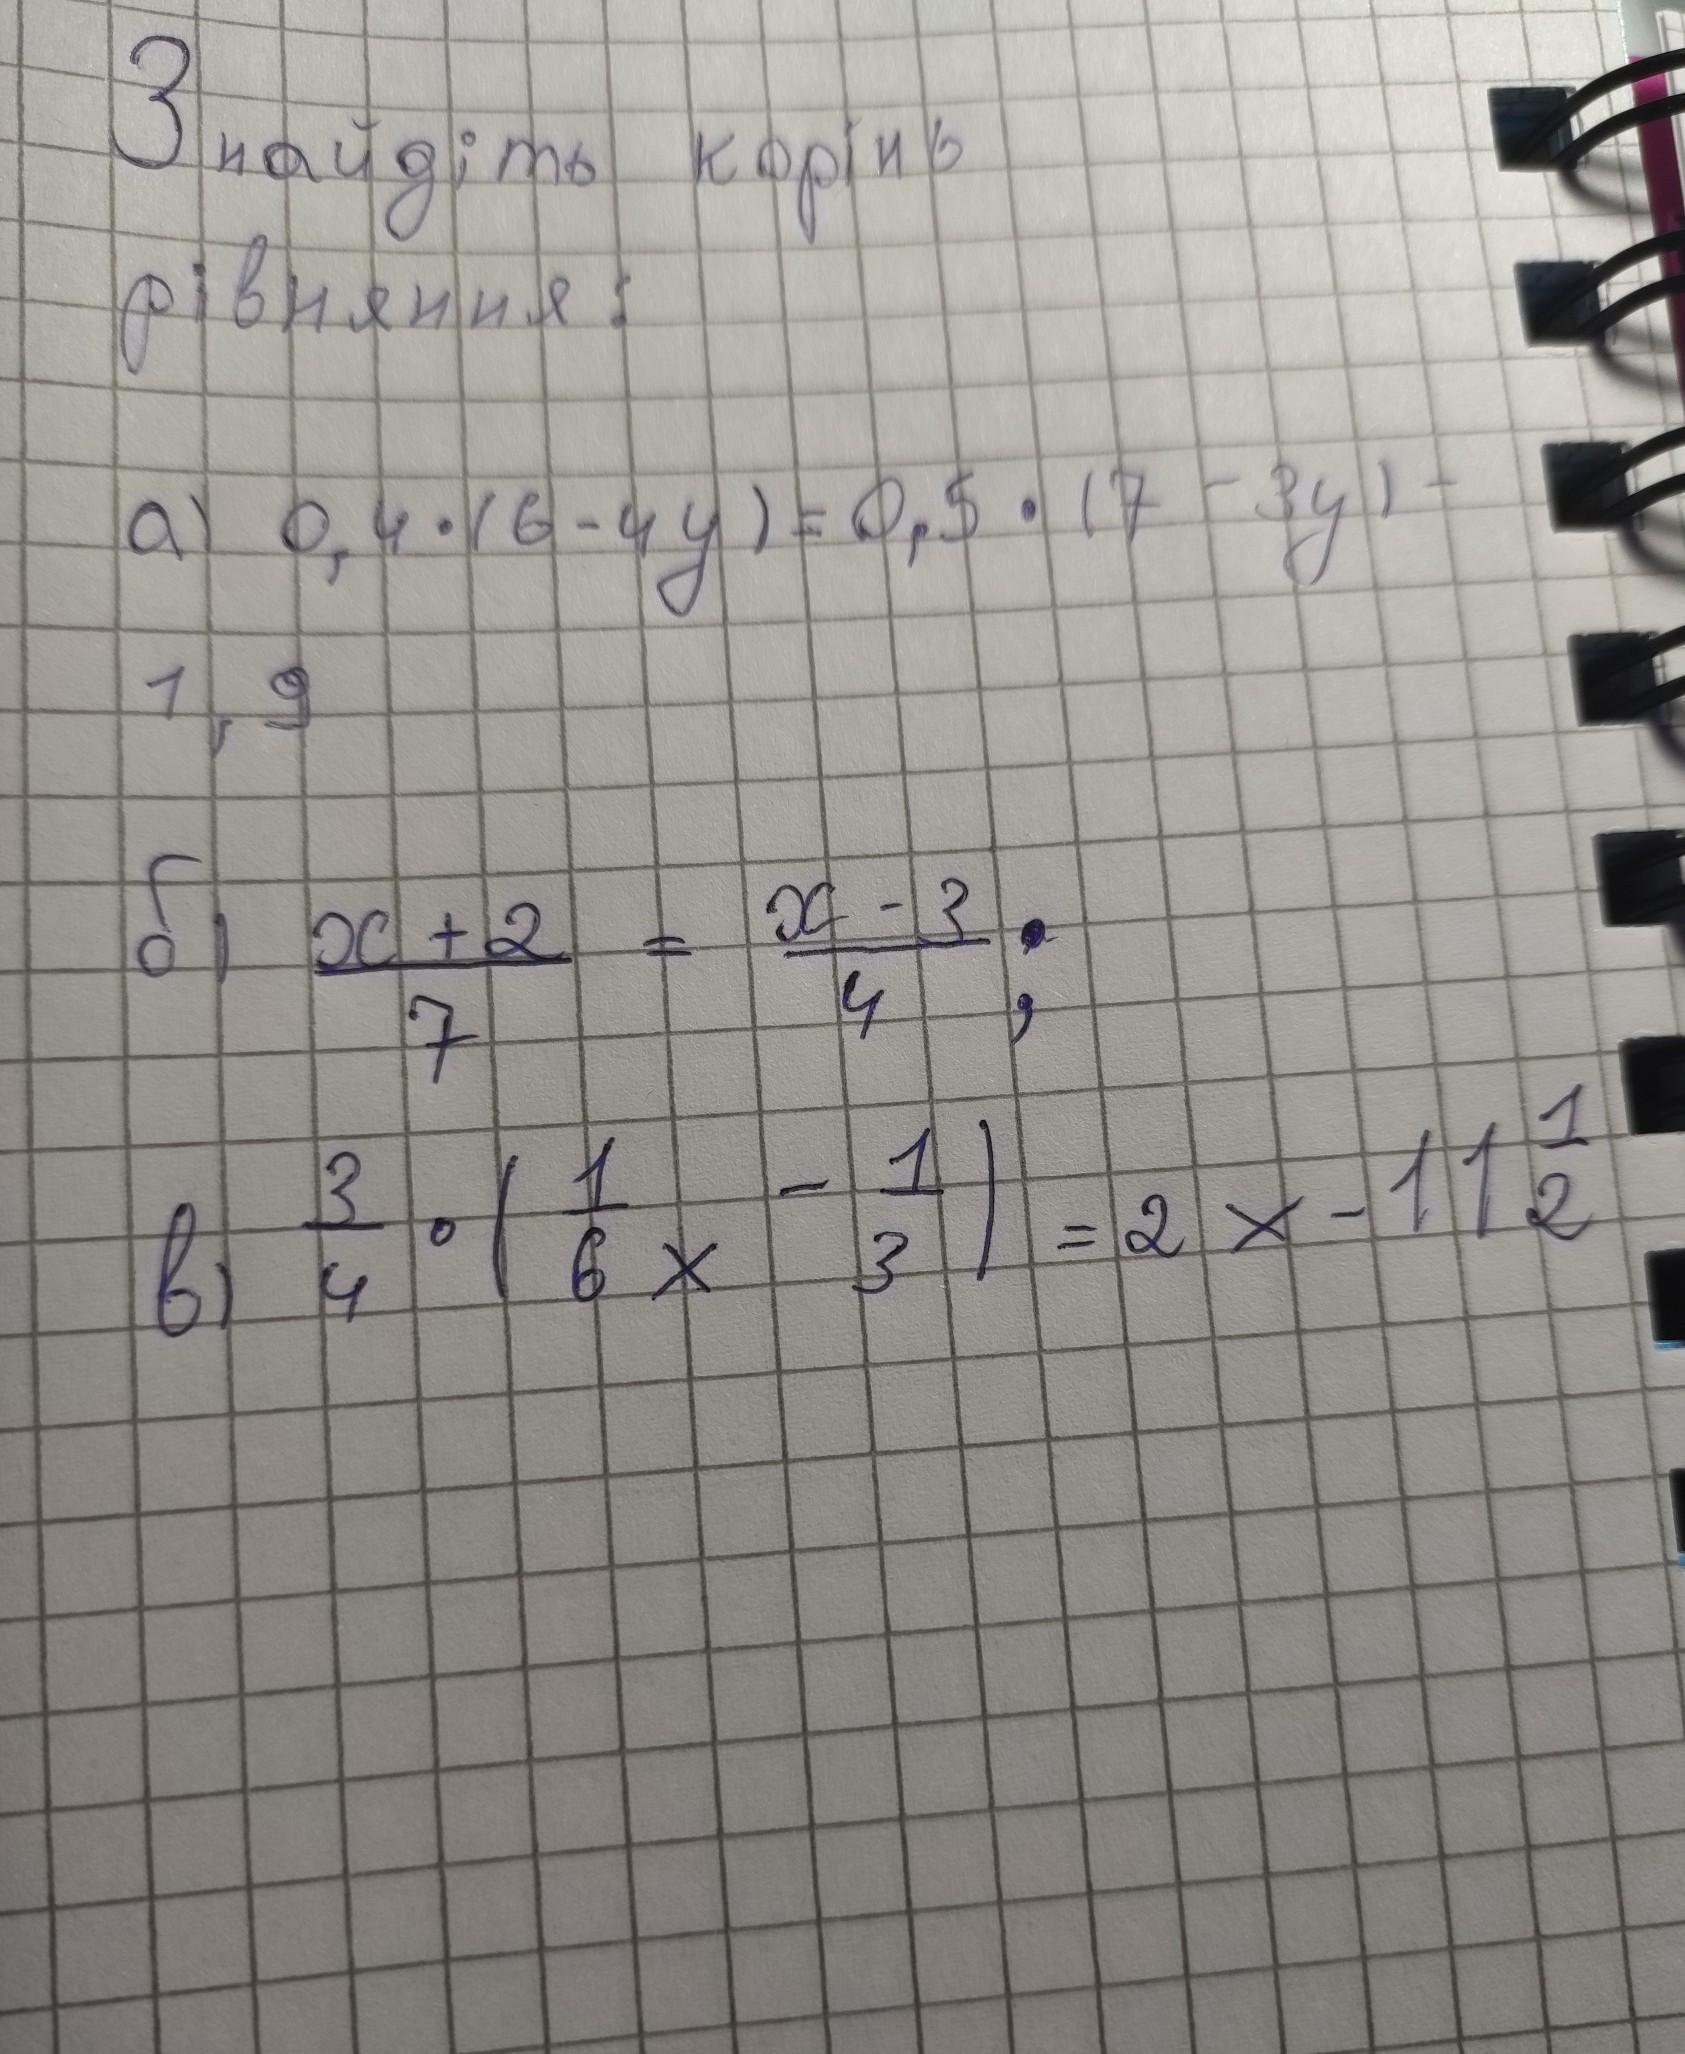 Знайдіть корінь
рівняння:
а) 0,4·(6-4y)=0,5·(7-3y)-
1,9
б) x+2/7 = x-3/4;
в) 3/4·(1/6x - 1/3)=2x-11 1/2